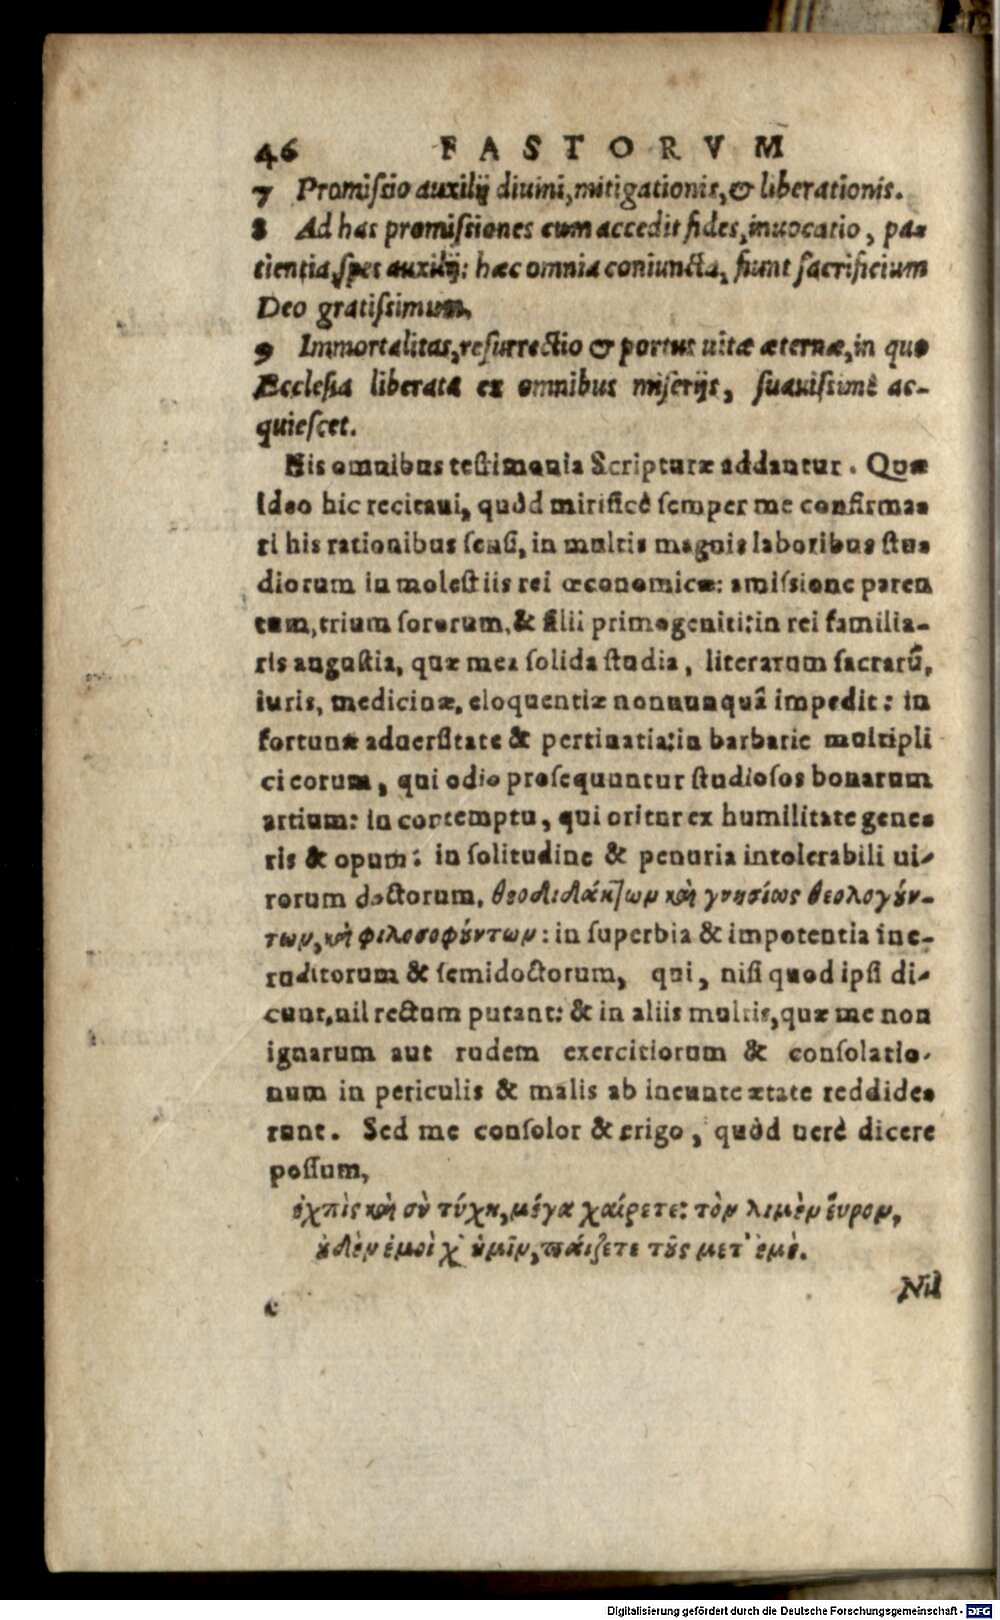 46 FASTORVM
7 Promiſsio auxilij diuini, mitigationis, & liberationis.
8 Ad has promiſsiones cum accedit fides, inuocatio, pa-
tientia, ſpes auxilij: hæc omnia coniuncta, fiunt ſacrificium
Deo gratiſsimum.
9 Immortalitas, reſurrectio & portus uitæ æternæ, in quo
Eccleſia liberata ex omnibus miſerijs, ſuauiſsimè ac-
quieſcet.
His omnibus teſtimonia Scripturæ addantur. Quæ
ideo hic recitaui, quòd mirificè ſemper me confirma-
ri his rationibus ſenſi, in multis magnis laboribus ſtu-
diorum in moleſtiis rei œconomicæ: amiſsione paren
tum, trium ſororum, & filii primogeniti: in rei familia-
ris anguſtia, quæ mea ſolida ſtudia, literarum ſacrarū,
iuris, medicinæ, eloquentiæ nonnunquā impedit: in
fortunæ aduerſitate & pertinatia: in barbarie multipli
ci eorum, qui odio proſequuntur ſtudioſos bonarum
artium: in contemptu, qui oritur ex humilitate gene-
ris & opum: in ſolitudine & penuria intolerabili ui-
rorum doctorum, θεοδιδάκτων καὶ γνησίως θεολογούν-
των, καὶ φιλοσοφούντων: in ſuperbia & impotentia ine-
ruditorum & ſemidoctorum, qui, niſi quod ipſi di-
cunt, nil rectum putant: & in aliis multis, quæ me non
ignarum aut rudem exercitiorum & conſolatio-
num in periculis & malis ab ineunte ætate reddide-
runt. Sed me conſolor & erigo, quòd uerè dicere
poſſum,
ἐλπὶς καὶ σὺ τύχη, μέγα χαίρετε: τὸν λιμὲν εὗρον,
οὐδὲν ἐμοὶ χ' ὑμῖν, παίζετε τοὺς μετ' ἐμὲ.
c Nil
Digitalisierung gefördert durch die Deutsche Forschungsgemeinschaft - DFG